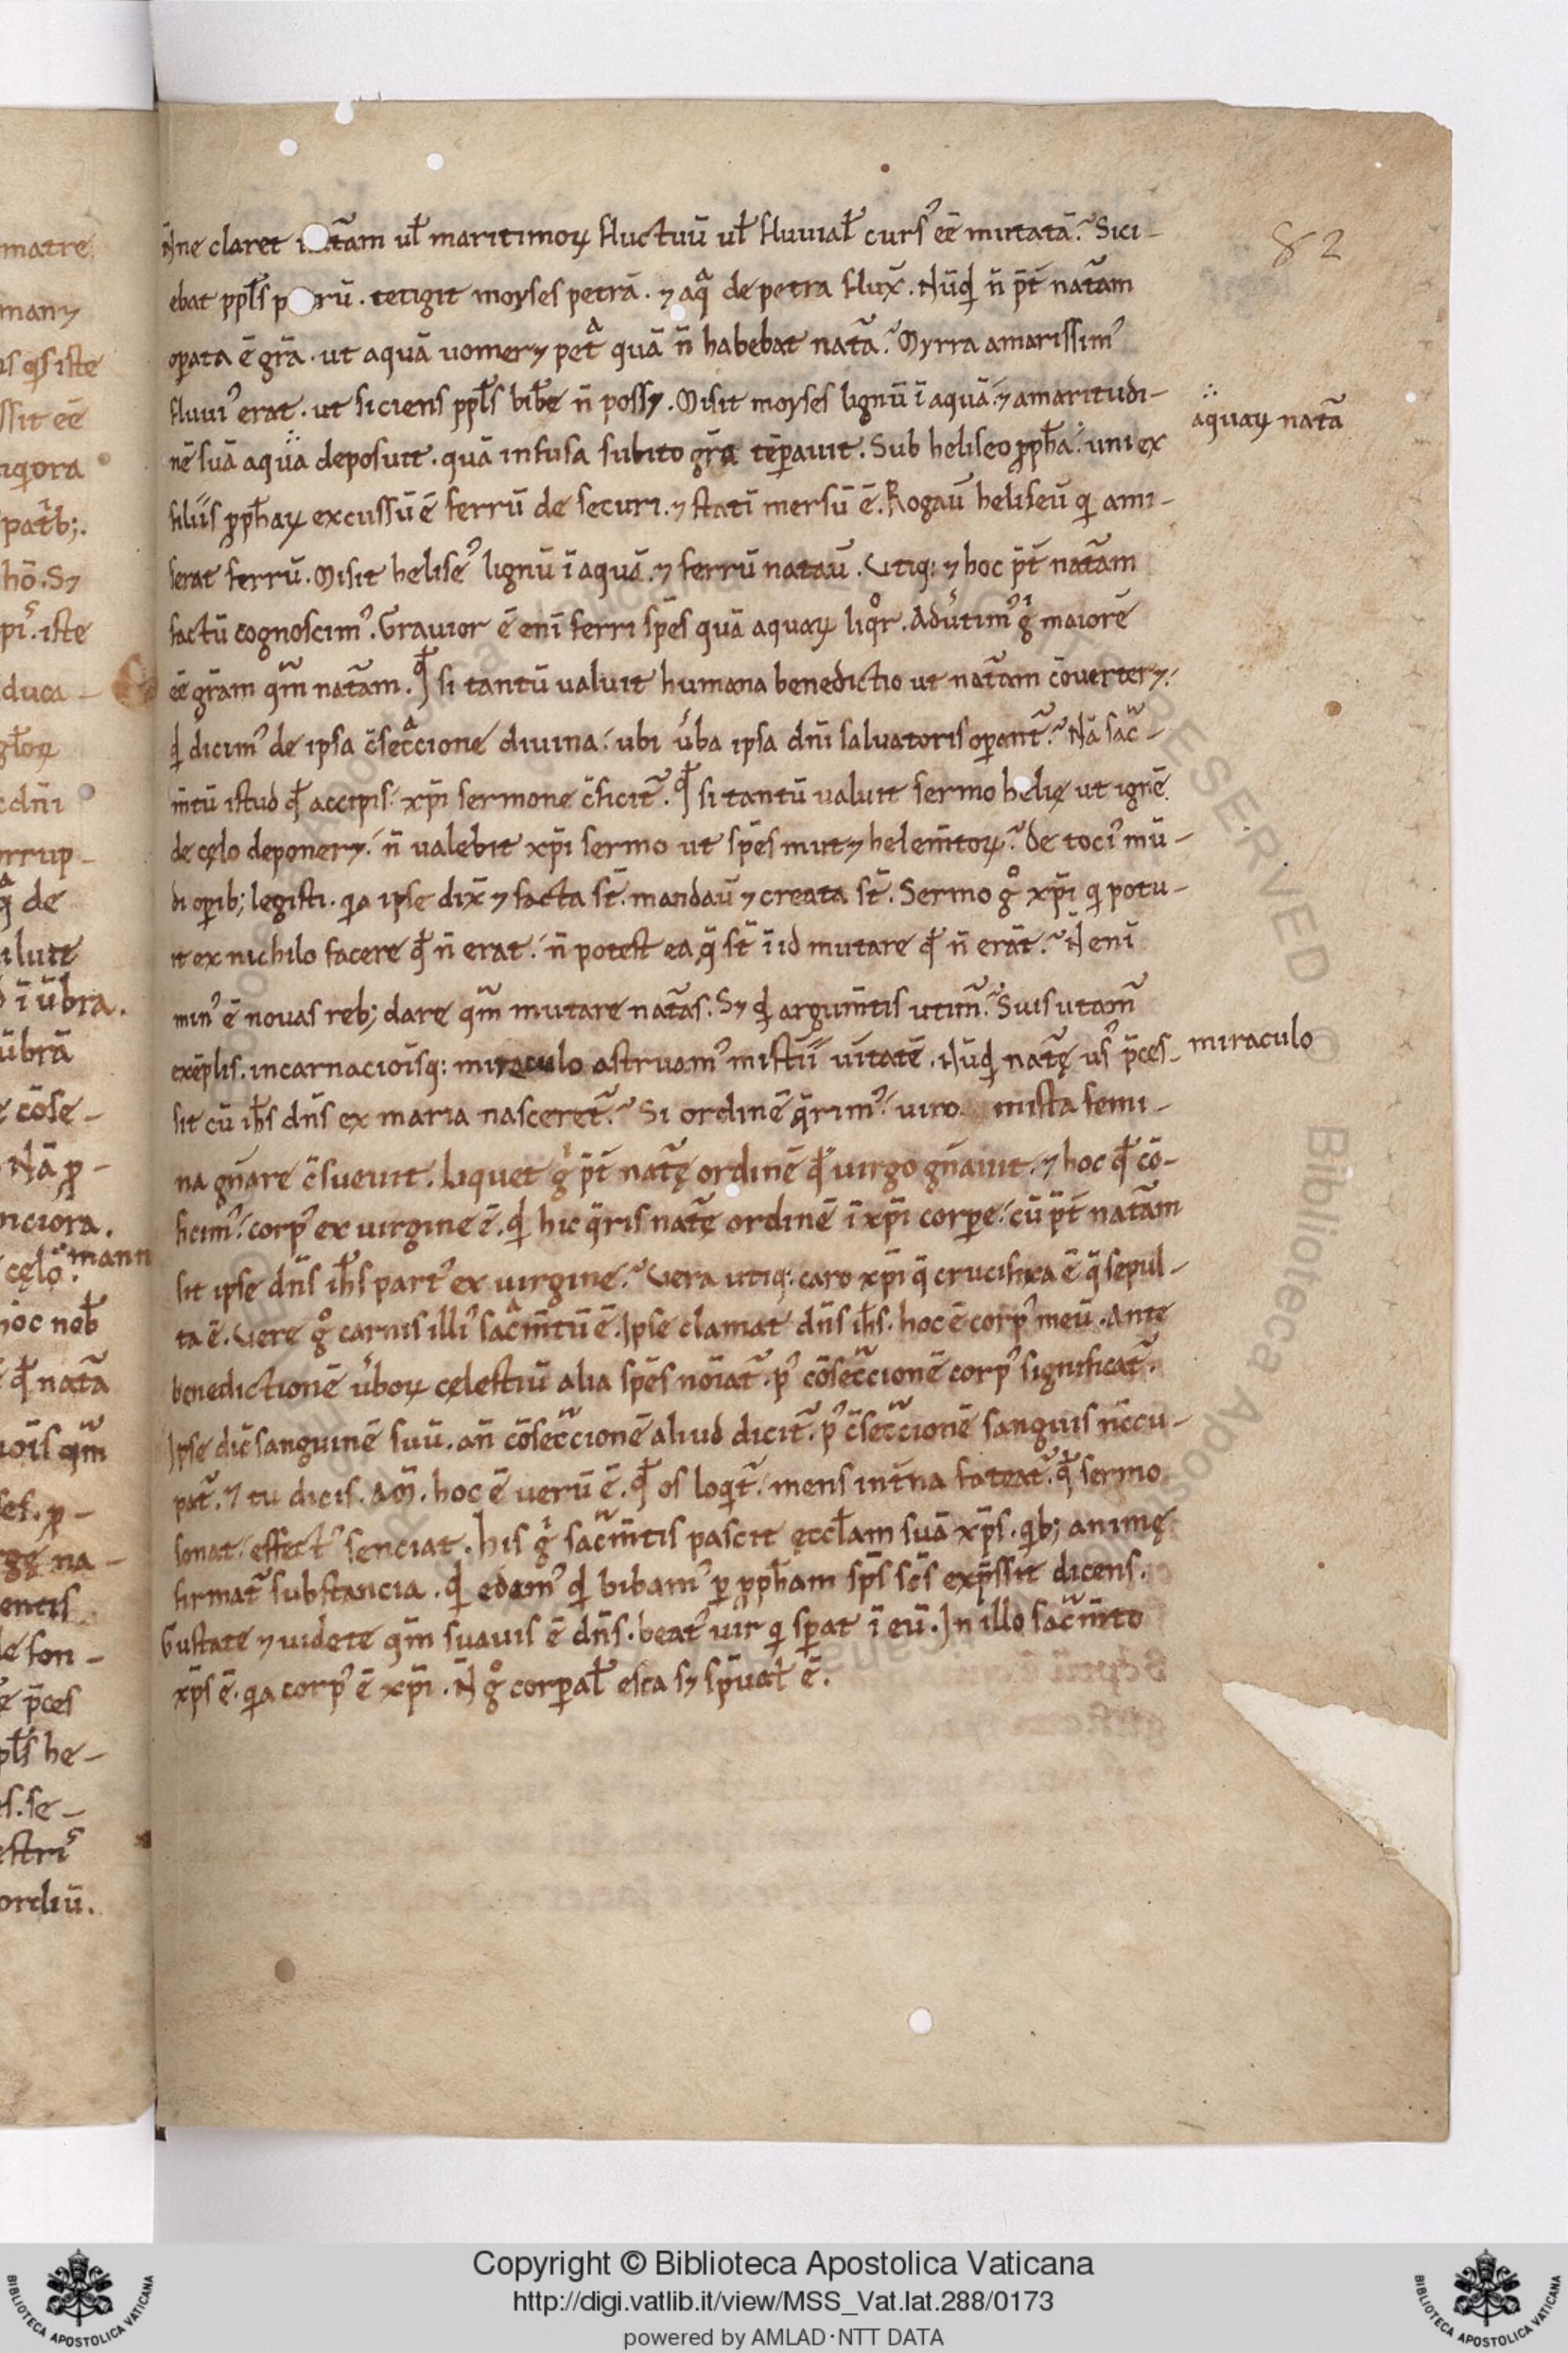 matre
many
is qs iste
ssit eē
iqora
pat̄b;.
hō. Sꝫ
pi. iste
duca –
gl̄oꝝ
dn̄i
orrup –
q̄ de
ilute
ī ūbra.
ūbrā
cōse –
Nā ꝓ –
nciora.
cęlo. mann
hoc nob̄
qd̄ natā
iōis qm̄
sef. ꝓ –
gę na –
entis
de fon –
p̄ces
pl̄s he –
es. se –
estri
ordiū.
82
N̄ne claret natām ul̄ maritimoꝝ fluctuū ul̄ fluuial̄ curs' eē mutatā? Sici –
ebat ppl̄s p rū. tetigit moyses petrā. ⁊ aq̄ de petra flux̄. Nūqd n̄ p̄t natām
oꝑata ē grā. ut aquā uomerꝫ pet̄ quā n̄ habebat natā? Myrra amarissim'
fluui' erat. ut siciens ppl̄s bib̄e n̄ possꝫ. Misit moyses lignū ī aquā. ⁊ amaritudi –
nē suā aqua deposuit. quā infusa subito grā tēꝑauit. Sub heliseo ꝓph̄a. uni ex
filiis ꝓph̄aꝝ excussū ē ferrū de securi. ⁊ statī mersū ē. Rogaū heliseū qi ami –
serat ferrū. Misit helise' lignū ī aquā. ⁊ ferrū nataū. Utiq: ⁊ hoc p̄t natām
factū cognoscim'. Grauior ē enī ferri sp̄es quā aquaꝝ liqr. Aduūtim' g maiorē
eē grām qm̄ natām. Qd̄ si tantū ualuit humana benedictio ut natām cōuerterꝫ.
qd dicim' de ipsa c̄seccione diuina. ubi ūba ipsa dn̄i saluatoris oꝑant̄? Nā sac̄ –
m̄tū istud qd̄ accipis. xp̄i sermone c̄ficit̄. Qd̄ si tantū ualuit sermo helię ut ignē
de cęlo deponerꝫ. n̄ ualebit xp̄i sermo ut sp̄es mutꝫ helem̄toꝝ? De toci' mū –
di oꝑib; legisti. qa ipse dix̄ ⁊ facta st̄. mandaū ⁊ creata st̄. Sermo g xp̄i qi potu –
it ex nichilo facere qd̄ n̄ erat. n̄ potest ea q̄ st̄ ī id mutare qd̄ n̄ erāt? N̄ enī
min' ē nouas reb; dare qm̄ mutare natās. Sꝫ qd argum̄tis utim̄? Suis utam̄
exēplis. incarnacioīsq: miraculo astruam' mistii uītatē. Nūqd natę us' p̄ces –
sit cū ih̄s dn̄s ex maria nasceret̄? Si ordinē q̄rim'. uiro mista femi –
na gn̄are c̄sueuit. Liquet g p̄t natę ordinē qd̄ uirgo gn̄auit. ⁊ hoc qd̄ cō –
ficim'. corp' ex uirgine ē. qd hic q̄ris natę ordinē ī xp̄i corꝑe. cū p̄t natām
sit ipse dn̄s ih̄s part' ex uirgine? Uera utiq: caro xp̄i q̄ crucifixa ē q̄ sepul –
ta ē. Uere g carnis illi' sac̄m̄tū ē. Ipse clamat dn̄s ih̄s. hoc ē corp' meū. Ante
benedictionē ūboꝝ cęlestiū alia sp̄es noīat̄. p' cōseccionē corp' significat̄.
Ipse dic̄ sanguinē suū. an̄ cōseccionē aliud dicit̄. p' c̄seccionē sanguis n̄ccu –
pat̄. ⁊ tu dicis. Am̄. hoc ē uerū ē. qd̄ os loqit̄. mens int̄na fateat̄. qd̄ sermo
sonat. effect' senciat. His g sac̄m̄tis pascit ęccl̄am suā xp̄s. qib; animę
firmat̄ substancia. qd edam' qd bibam' ꝑ ꝓph̄am sp̄s sc̄s exp̄ssit dicens.
Gustate ⁊ uidete qm̄ suauis ē dn̄s. beat' uir qi sꝑat ī eū. In illo sac̄m̄to
xp̄s ē. qa corp' ē xp̄i. N̄ g corꝑal̄ esca sꝫ sp̄ual̄ ē.
aquaꝝ natā
miraculo
Copyright © Biblioteca Apostolica Vaticana
http://digi.vatlib.it/view/MSS_Vat.lat.288/0173
powered by AMLAD·NTT DATA
BIBLIOTECA APOSTOLICA VATICANA
BIBLIOTECA APOSTOLICA VATICANA